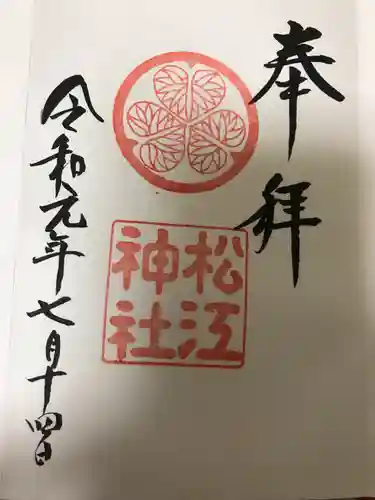 奉拝
松江
神社
令和元年七月十四日